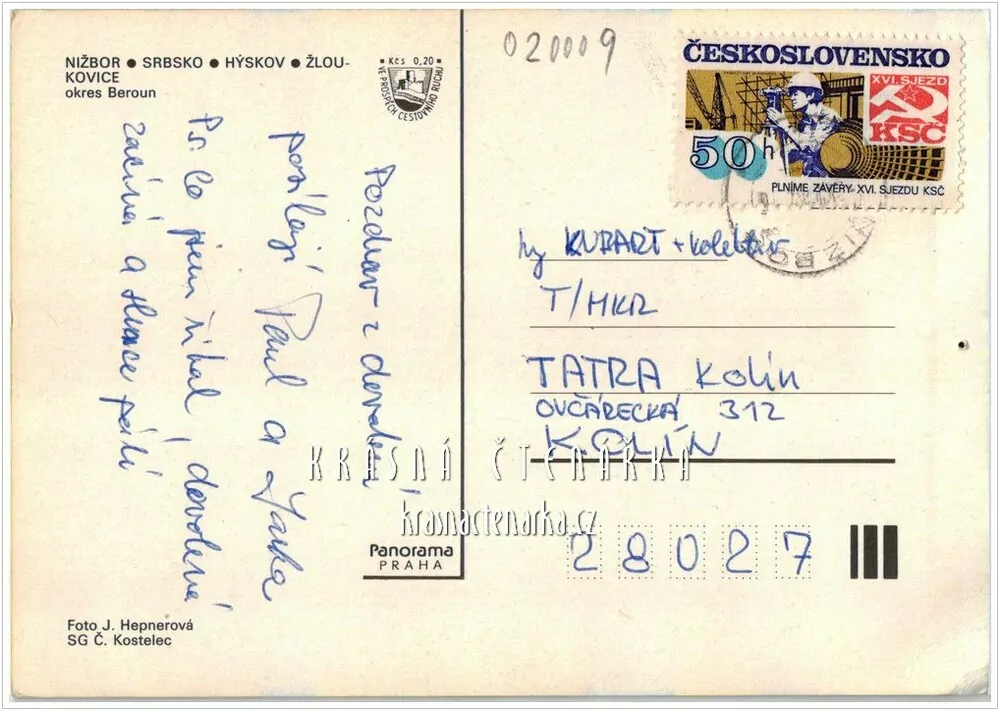 NIŽBOR ● SRBSKO ● HÝSKOV ● ŽLOU-
KOVICE
okres Beroun
Kčs 0,20
VE PROSPĚCH CESTOVNÍHO RUCHU
020009
ČESKOSLOVENSKO
XVI. SJEZD
KSČ
50 h
PLNÍME ZÁVĚRY XVI. SJEZDU KSČ
NIŽBO
Pozdrav z dovolený
posílají Paul a Jarka
Ps. Co jsem říkal, dovolená
začíná a slunce pálí
KUBART + kolektiv
T/MKR
TATRA Kolín
OVČÁRECKÁ 312
KOLÍN
28027
KRÁSNÁ ČTENÁŘKA
krasnactenarka.cz
Panorama
PRAHA
Foto J. Hepnerová
SG Č. Kostelec